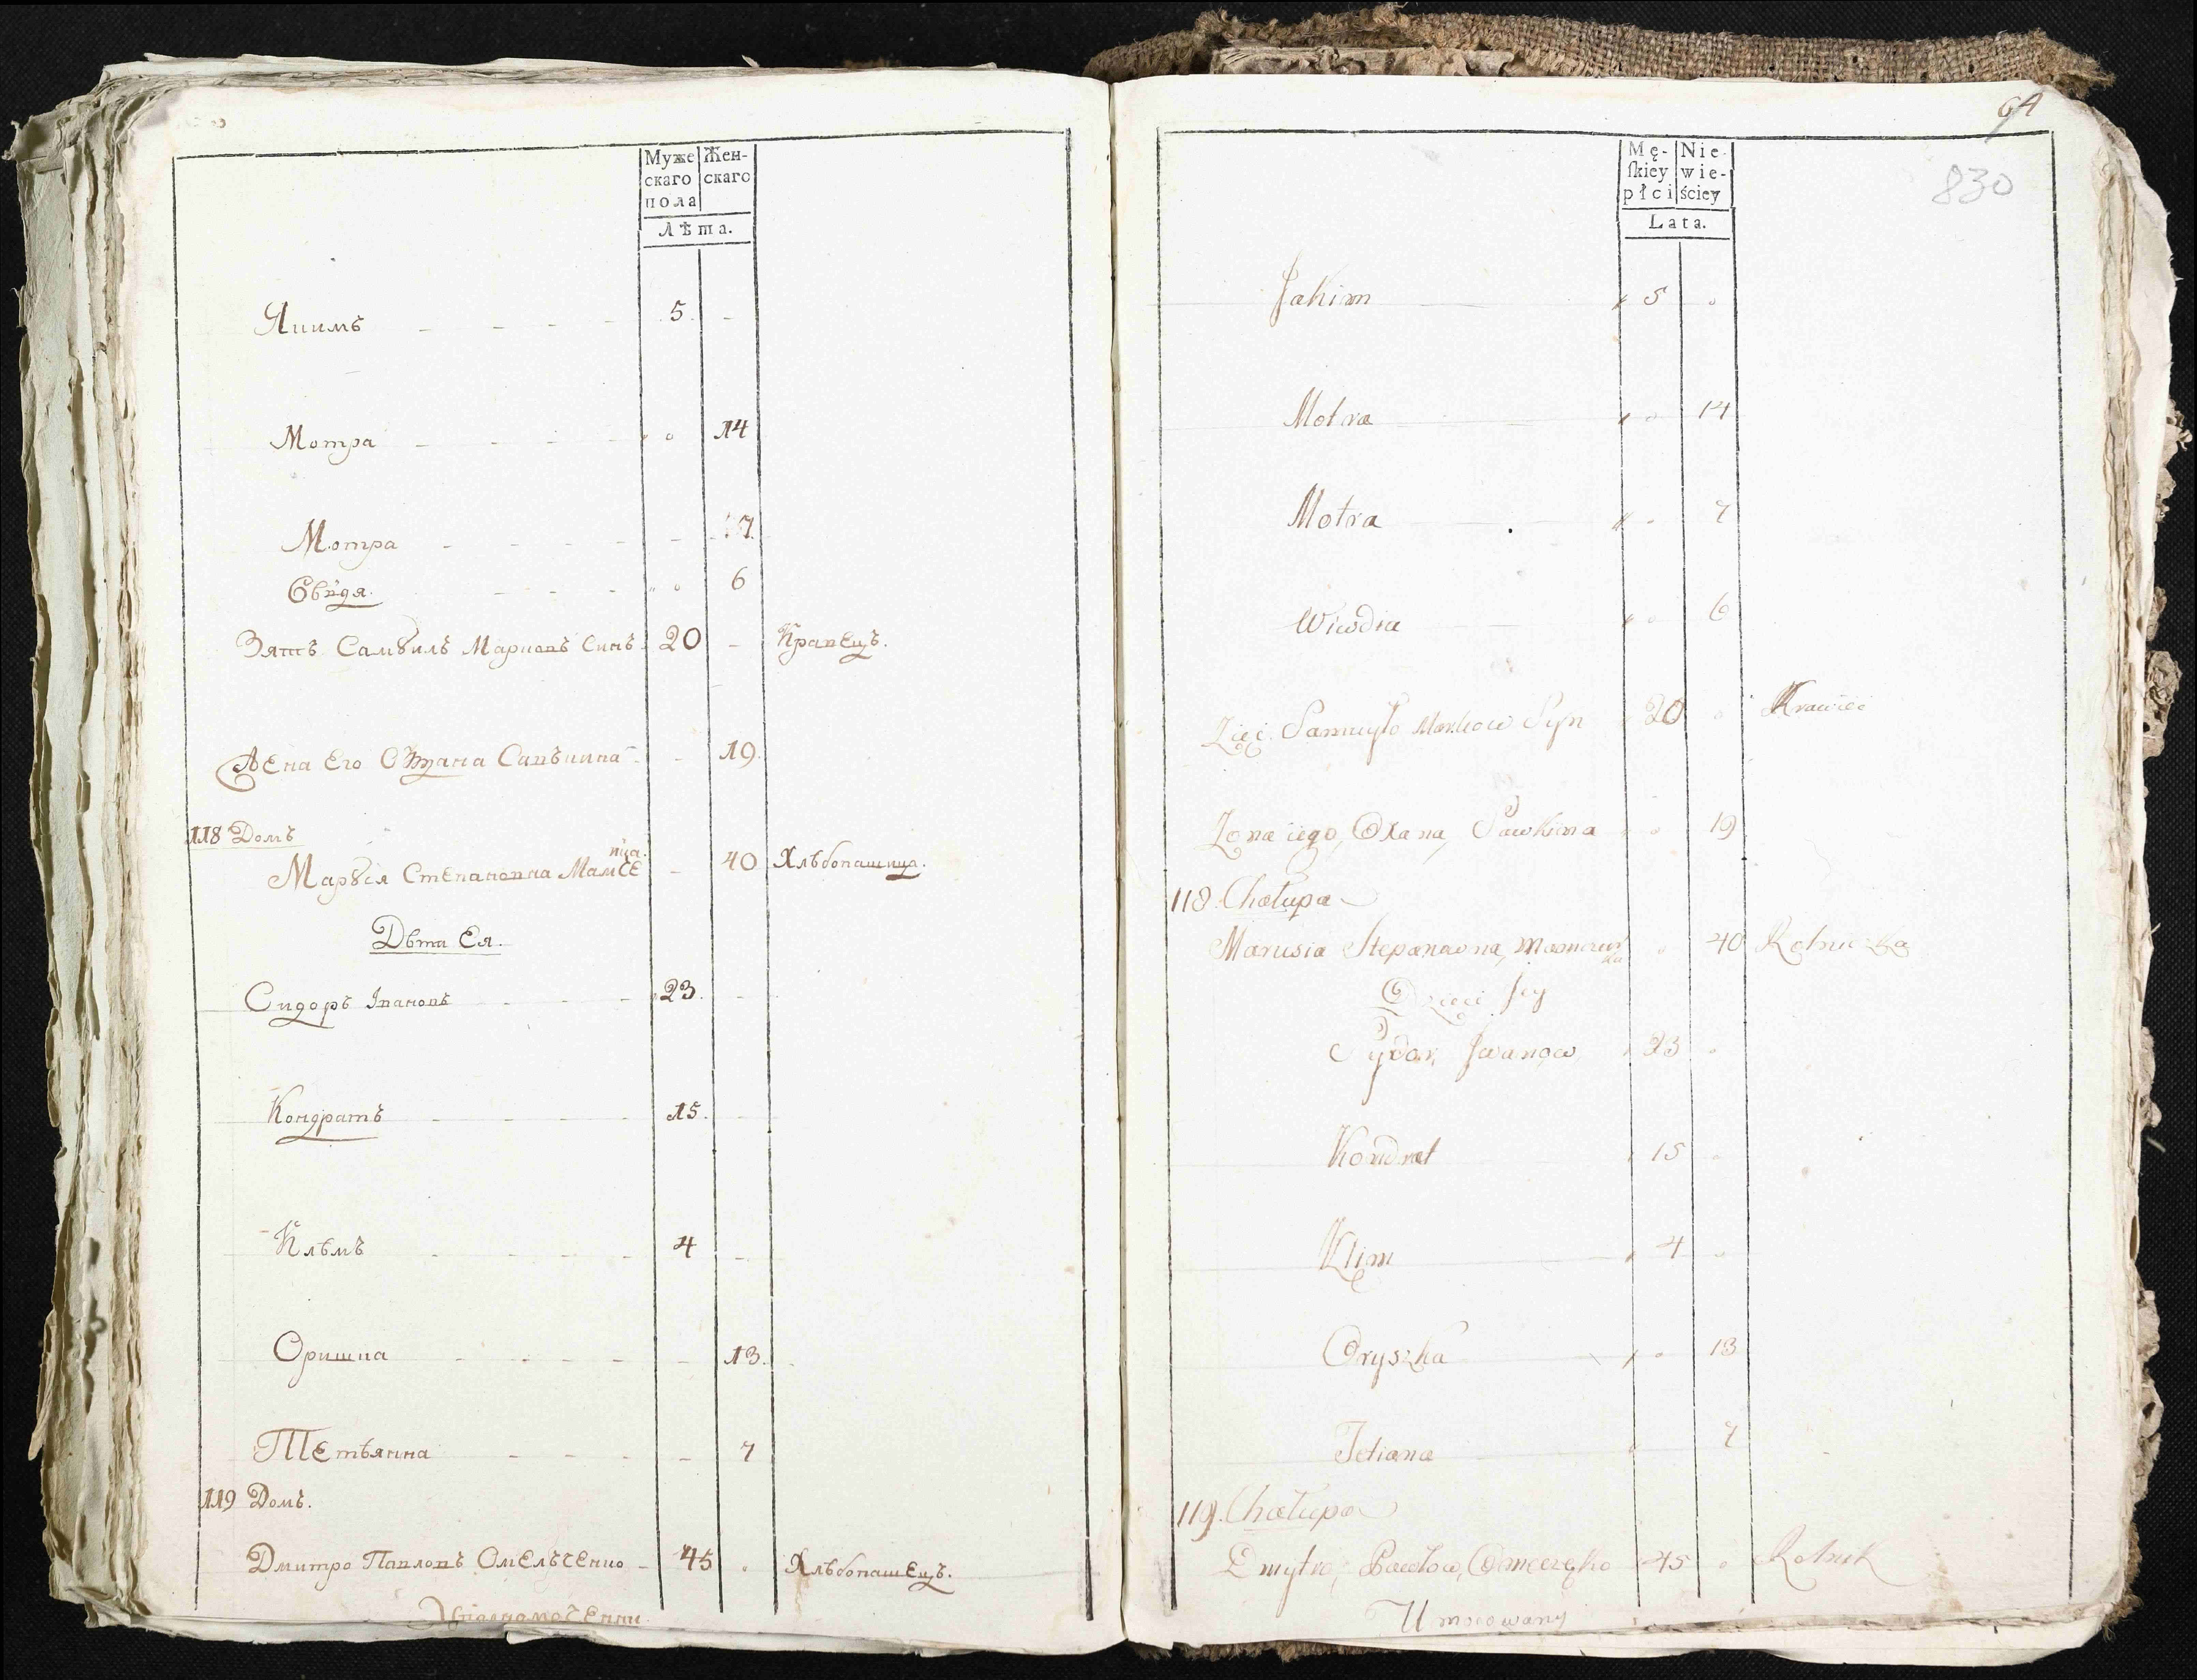 Муже Жен-
скаго скаго
пола
Лѣта.
Якимъ 5.
Мотра 14
Мотра 7.
Євъдя. 6
Зять Самꙋилъ Марковъ Синъ. 20 Кравецъ.
Жена Его Оѯана Савъкина 19.
118 Домъ
Марꙋсія Степановна Мамчє 40 Хлѣбопашица.
Дѣти Ея.
Сидоръ Івановъ 23.
Кондратъ 15.
Клѣмъ 4
Оришка 13.
Тетьянна 7
119 Домъ.
Дмитро Павловъ Омелъченко 45 Хлѣбопашецъ.
64
830
Mę- Nie-
ſkiey wie-
płci ściey
Lata.
Jakim 5
Motra 14
Motra 7
Wiwdia 6
Zięć Samuyło Markow Syn 20 Krawiec
Zona iego, Oxana, Sawkina 19
118. Chałupa
Marusia Stepanowna, 40 Rolniczka
Dzieci Jey
Sydor, Jwanow 23
Kondrat 15
Klim 4
Oryszka 13
Tetiana 7
119. Chałupa
Dmytro, Pawłow, 45 Rolnik